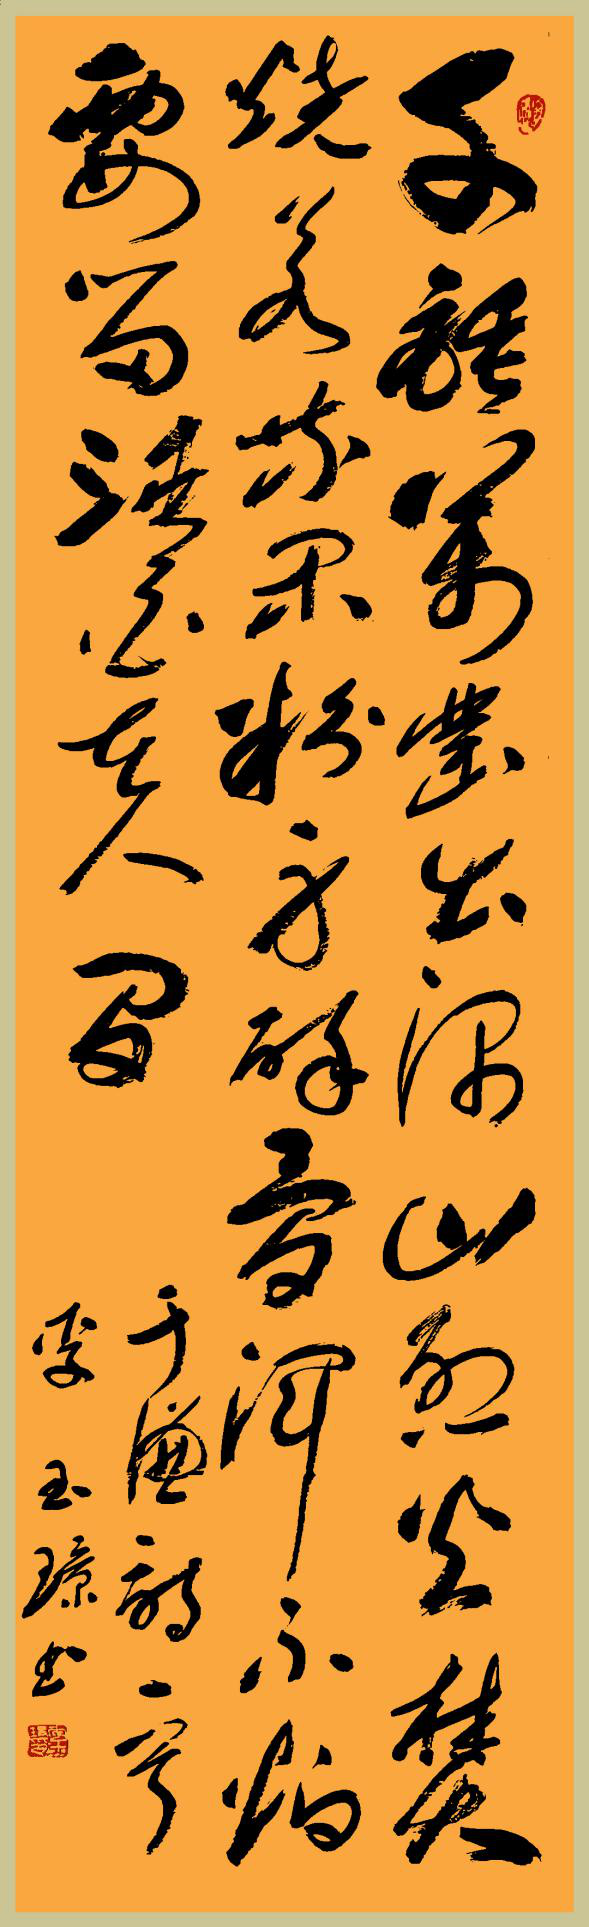 千錘萬凿出深山烈火焚
烧若等闲粉身碎骨渾不怕
要留清白在人間
于謙詩一首
李玉书